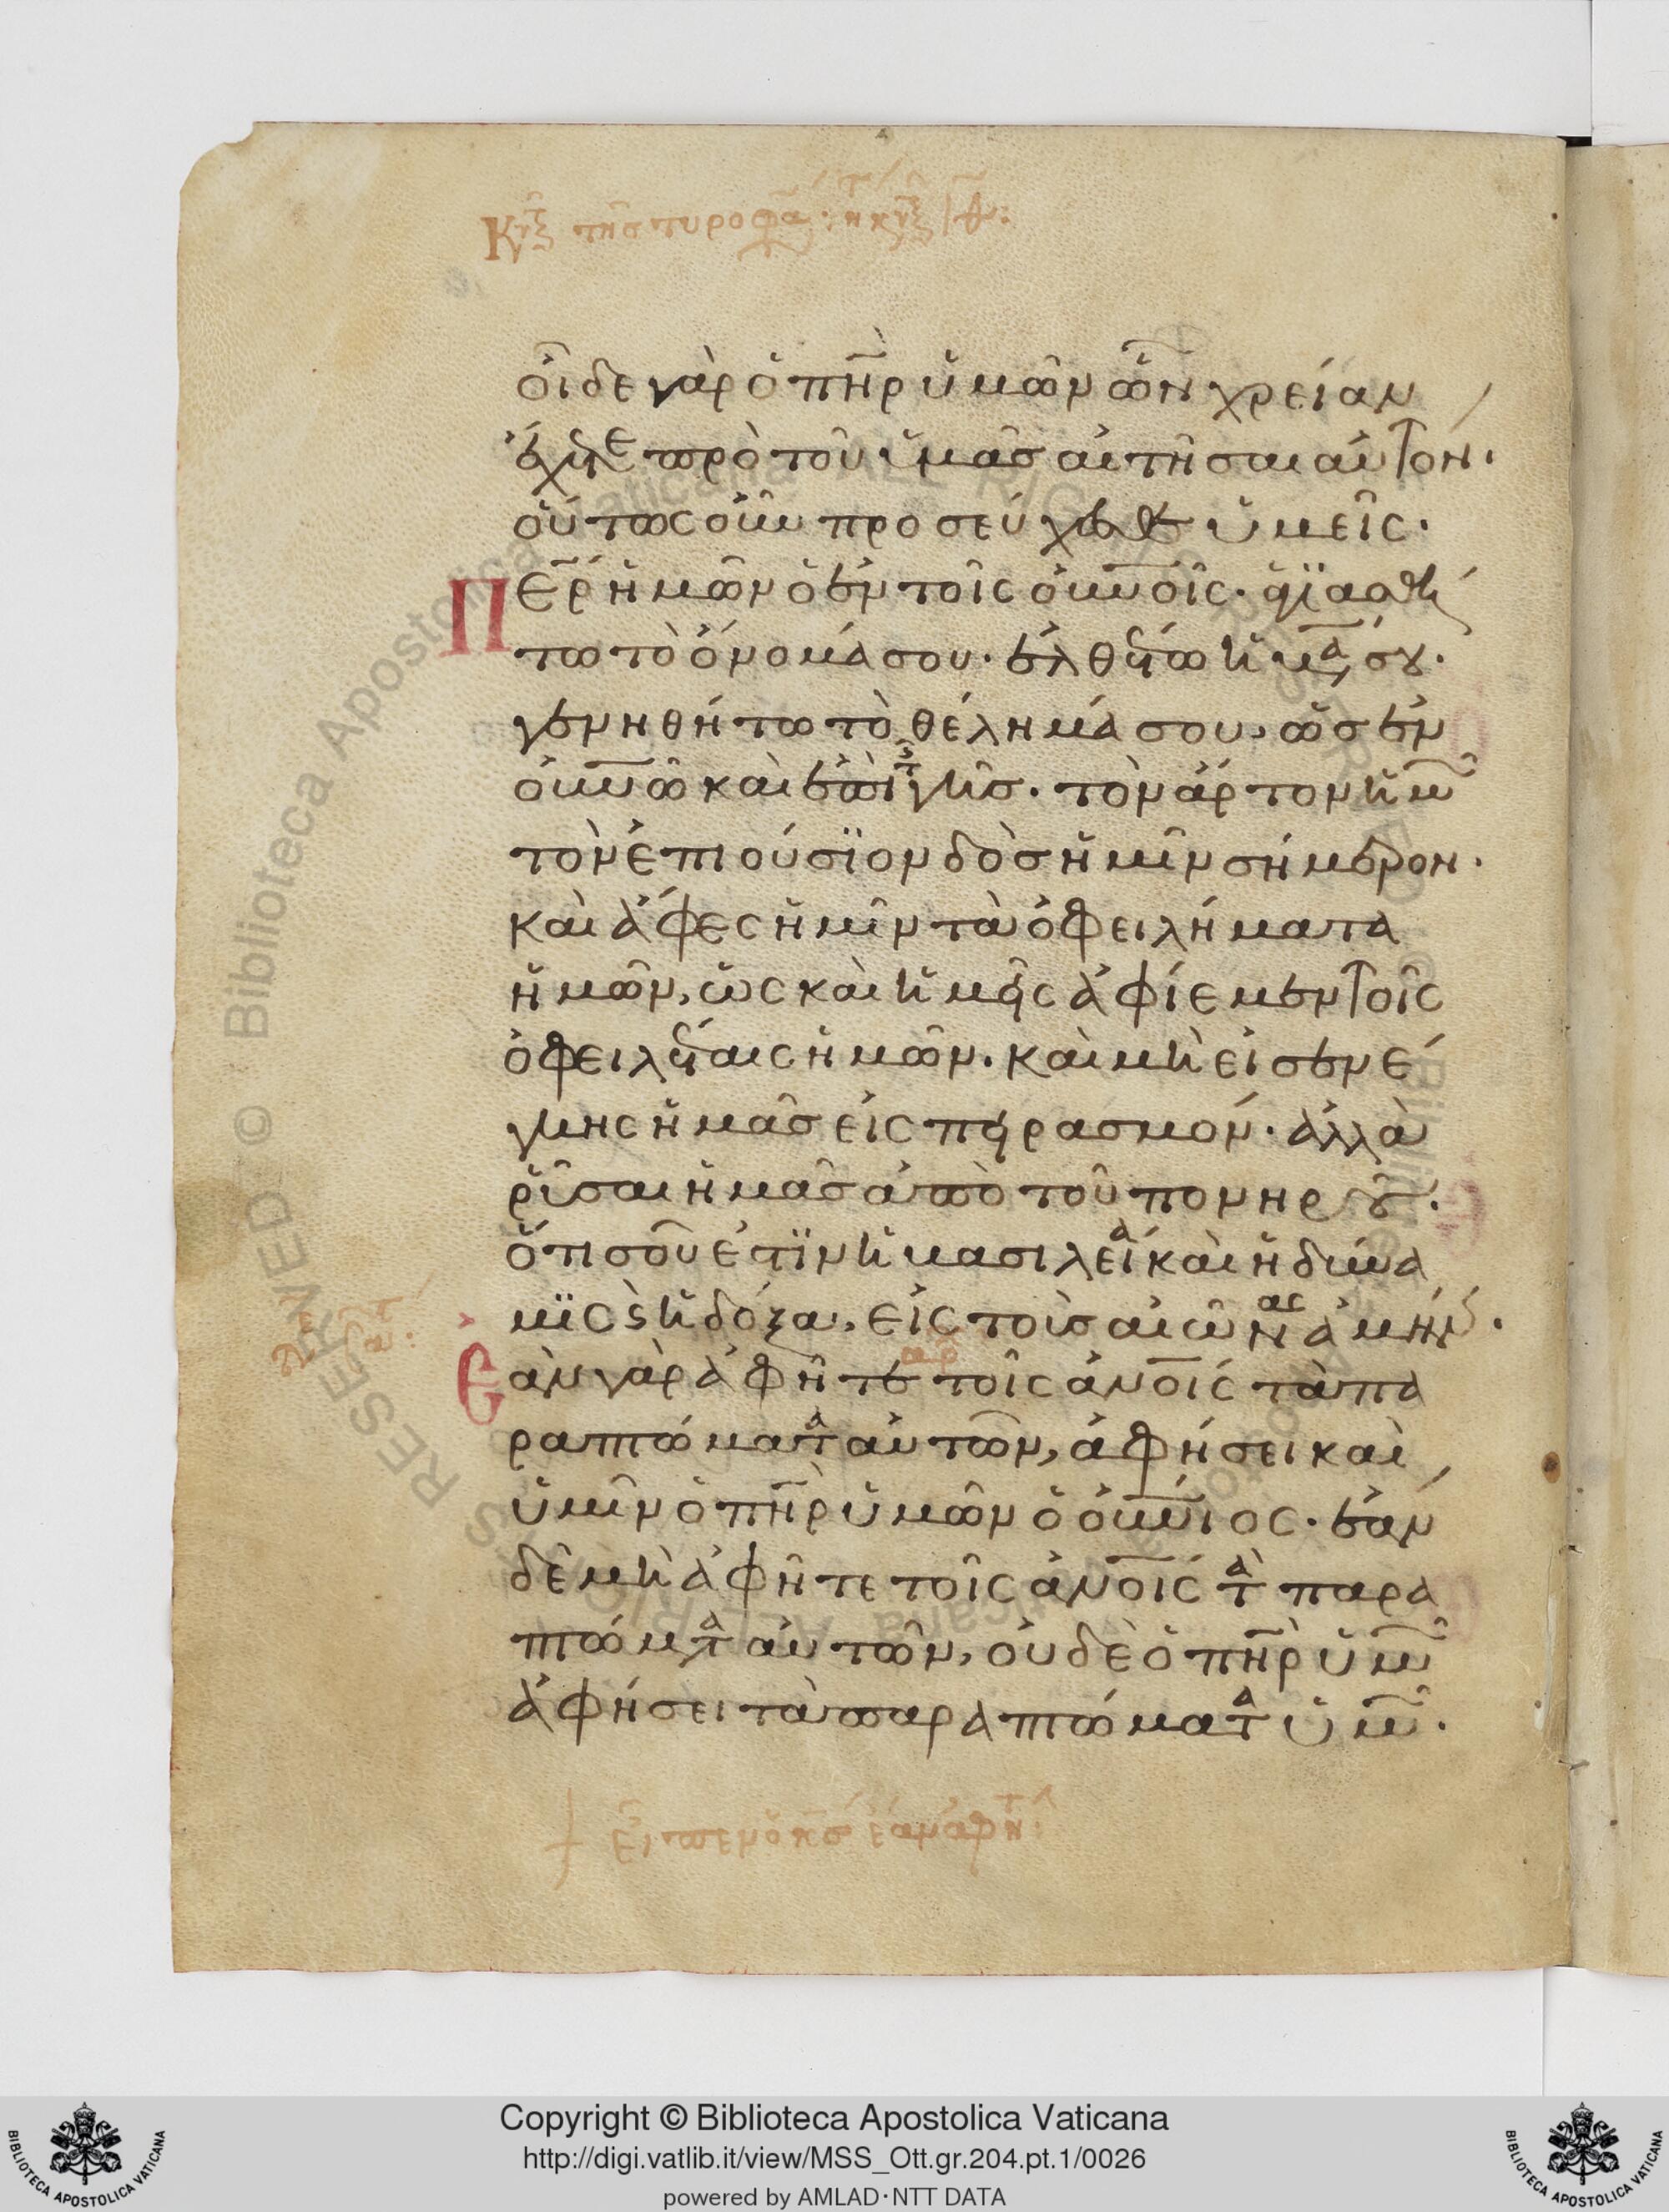 οἶδε γὰρ ὁ π̅η̅ρ̅ ὑμῶν ὧν χρείαν
ἔχετε πρὸ τοῦ ὑμᾶς αἰτῆσαι αὐτόν·
οὕτως οὖν προσεύχεσθε ὑμεῖς·
Πε̅ρ̅ ἡμῶν ὁ ἐν τοῖς ο̅υ̅ν̅οῖς· ἁγϊασθή
τω τὸ ὄνομά σου· ἐλθέτω ἡ β̅α̅ σου·
γενηθήτω τὸ θέλημά σου, ὡς ἐν
ο̅υ̅ν̅ῶ καὶ ἐπὶ τ γῆς· τὸν ἄρτον ἡμ
τὸν ἐπιούσϊον δὸς ἡμῖν σήμερον·
καὶ ἄφες ἡμῖν τὰ ὀφειλήματα
ἡμῶν, ὡς καὶ ἡμεῖς ἀφίεμεν τοῖς
ὀφειλέταις ἡμῶν· καὶ μὴ εἰσενέ
γκης ἡμᾶς εἰς πειρασμόν· ἀλλὰ
ῥῦσαι ἡμᾶς ἀπὸ τοῦ πονηροῦ·
ὅτι σοῦ ἐστϊν ἡ βασιλεία καὶ ἡ δύνα
μϊς ϗ ἡ δόξα, εἰς τοὺς αἰῶνας ἀμήν·
Ἐὰν γὰρ ἀφῆτε τοῖς α̅ν̅οις τὰ πα
ραπτώματα αὐτῶν, ἀφήσει καὶ
ὑμῖν ὁ π̅η̅ρ̅ ὑμῶν ὁ ο̅υ̅ν̅ιος· ἐὰν
δὲ μὴ ἀφῆτε τοῖς α̅ν̅οις τὰ παρα
πτώματα αὐτῶν, οὐδὲ ὁ π̅η̅ρ̅ ὑμ
ἀφήσει τὰ παραπτώματα ὑμ·
Copyright © Biblioteca Apostolica Vaticana
http://digi.vatlib.it/view/MSS_Ott.gr.204.pt.1/0026
powered by AMLAD·NTT DATA
BIBLIOTECA APOSTOLICA VATICANA
BIBLIOTECA APOSTOLICA VATICANA